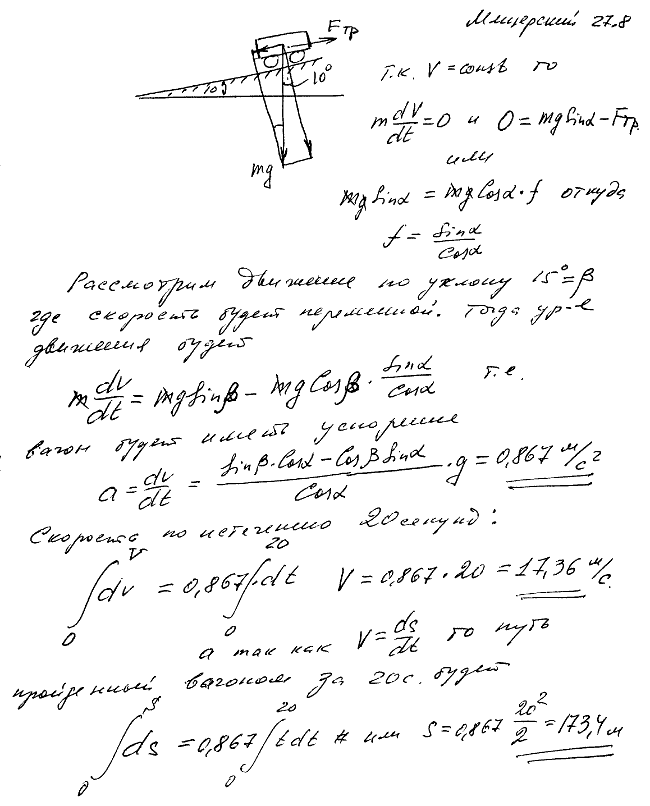 Мещерский 27.8
Fтр
10°
10°
mg
т.к. V = const то
m dv/dt = 0 и 0 = mg Sinα − Fтр.
или
mg Sinα = mg Cosα · f откуда
f = Sinα/Cosα
Рассмотрим движение по уклону 15° = β
где скорость будет переменной. Тогда ур-е
движения будет
m dv/dt = mg Sinβ − mg Cosβ · Sinα/Cosα т.е.
вагон будет иметь ускорение
a = dv/dt = (Sinβ · Cosα − Cosβ Sinα)/Cosα · g = 0,867 м/с²
Скорость по истечению 20 секунд:
∫₀ⱽ dv = 0,867 ∫₀²⁰ dt V = 0,867 · 20 = 17,36 м/с.
а так как V = ds/dt то путь
пройденный вагоном за 20с. будет
∫₀ˢ ds = 0,867 ∫₀²⁰ t dt или S = 0,867 20²/2 = 173,4 м